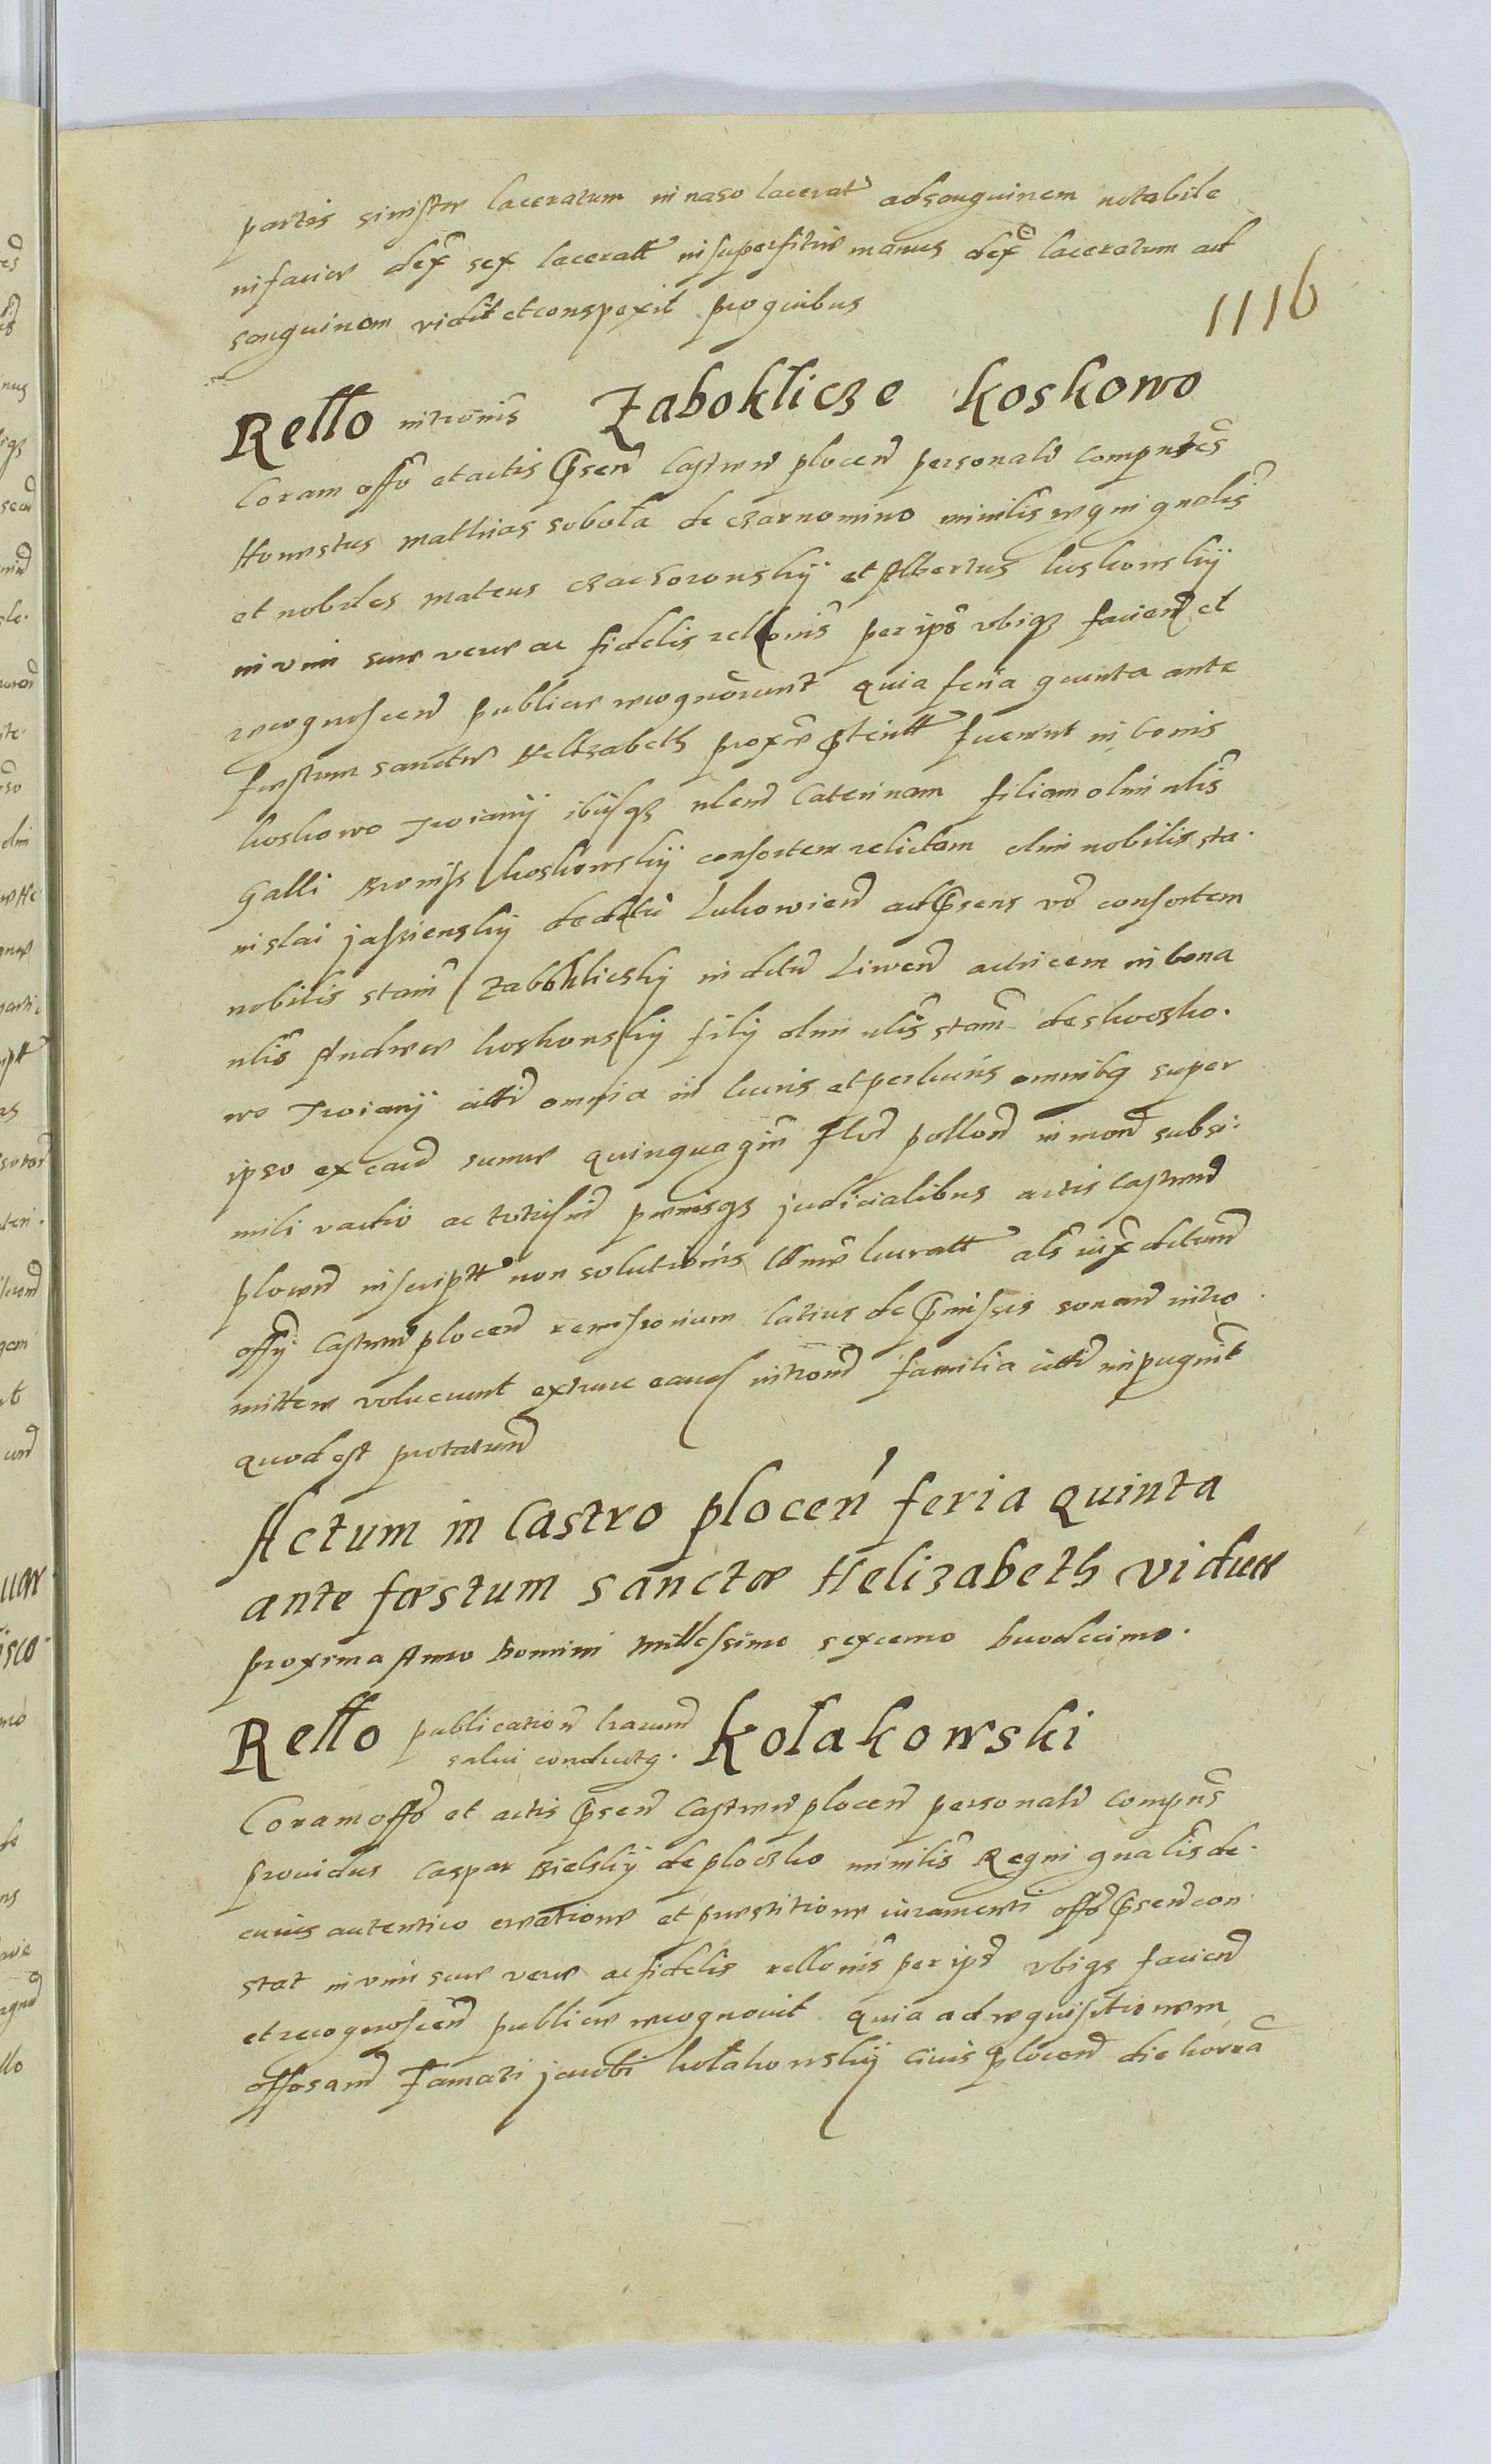 partis sinistræ laceratum in naso lacerat ad sanguinem notabile
in facie dex sex laceratt in superficie manus dex laceratum ad
sanguinem vidit et conspexit pro quibus
1116
Rello intromis Zaboklicze Koskowo
Coram offo et actis pñsen Castren plocen personalr compntes
Honestus Mathias Sobota de Czarnomino minilis regni gnalis
et nobiles Mateus Czachorowskij et Albertus Koskowskij
in vim suæ veræ ac fidelis rellonis per ipos vbiqz facien et
recognoscen publice recognorunt quia feria quinta ante
festum sanctæ Helizabeth prox pteritt fuerunt in bonis
Koskowo Troianij ibiqz nlem Caterinam filiam olim nlis
Galli Bronisz Koskowskij consortem relictam olim nobilis Sta
nislai Jasienskij de dctu Lukowien ad pñsens vo consortem
nobilis Stani Zabokliczkij in dctu Liwen actricem in bona
nlis Andreæ Koskowskij filij olim nlis Stani de Skoczko
wo Troianij ittr omnia in lucris et perlucris omnibq super
ipso ex caud sumæ quinquagin flor pollon in mon subsi
mili vadio ac totisqz pænisqz judicialibus actis Castren
plocen inscriptt non solutionis lucratt als iux dctum
offij Castren plocen remissorium latius de pmissis sonan intro
mittere voluerunt extunc eand intromi familia ittr impugnit
quod est protatum
Actum in Castro plocen feria quinta
ante fæstum Sanctæ Helizabeth viduæ
proxima Anno Domini Millessimo sexcemo duodecimo.
Rello publication lrarum
salui conductq. Kołakowski
Coram offo et actis pñsen Castren plocen personalr compns
prouidus Caspar Bielskij de płoczko minilis Regni gnalis de
cuius autentico creatione et præstitione iuramenti offo pñsen con
stat in vim suæ veræ ac fidelis rellonis per ipm vbiqz facien
et recognoscen publice recognouit quia ad requisitionem
offosam Famati jacobi Kołakowskij ciuis plocen die horra